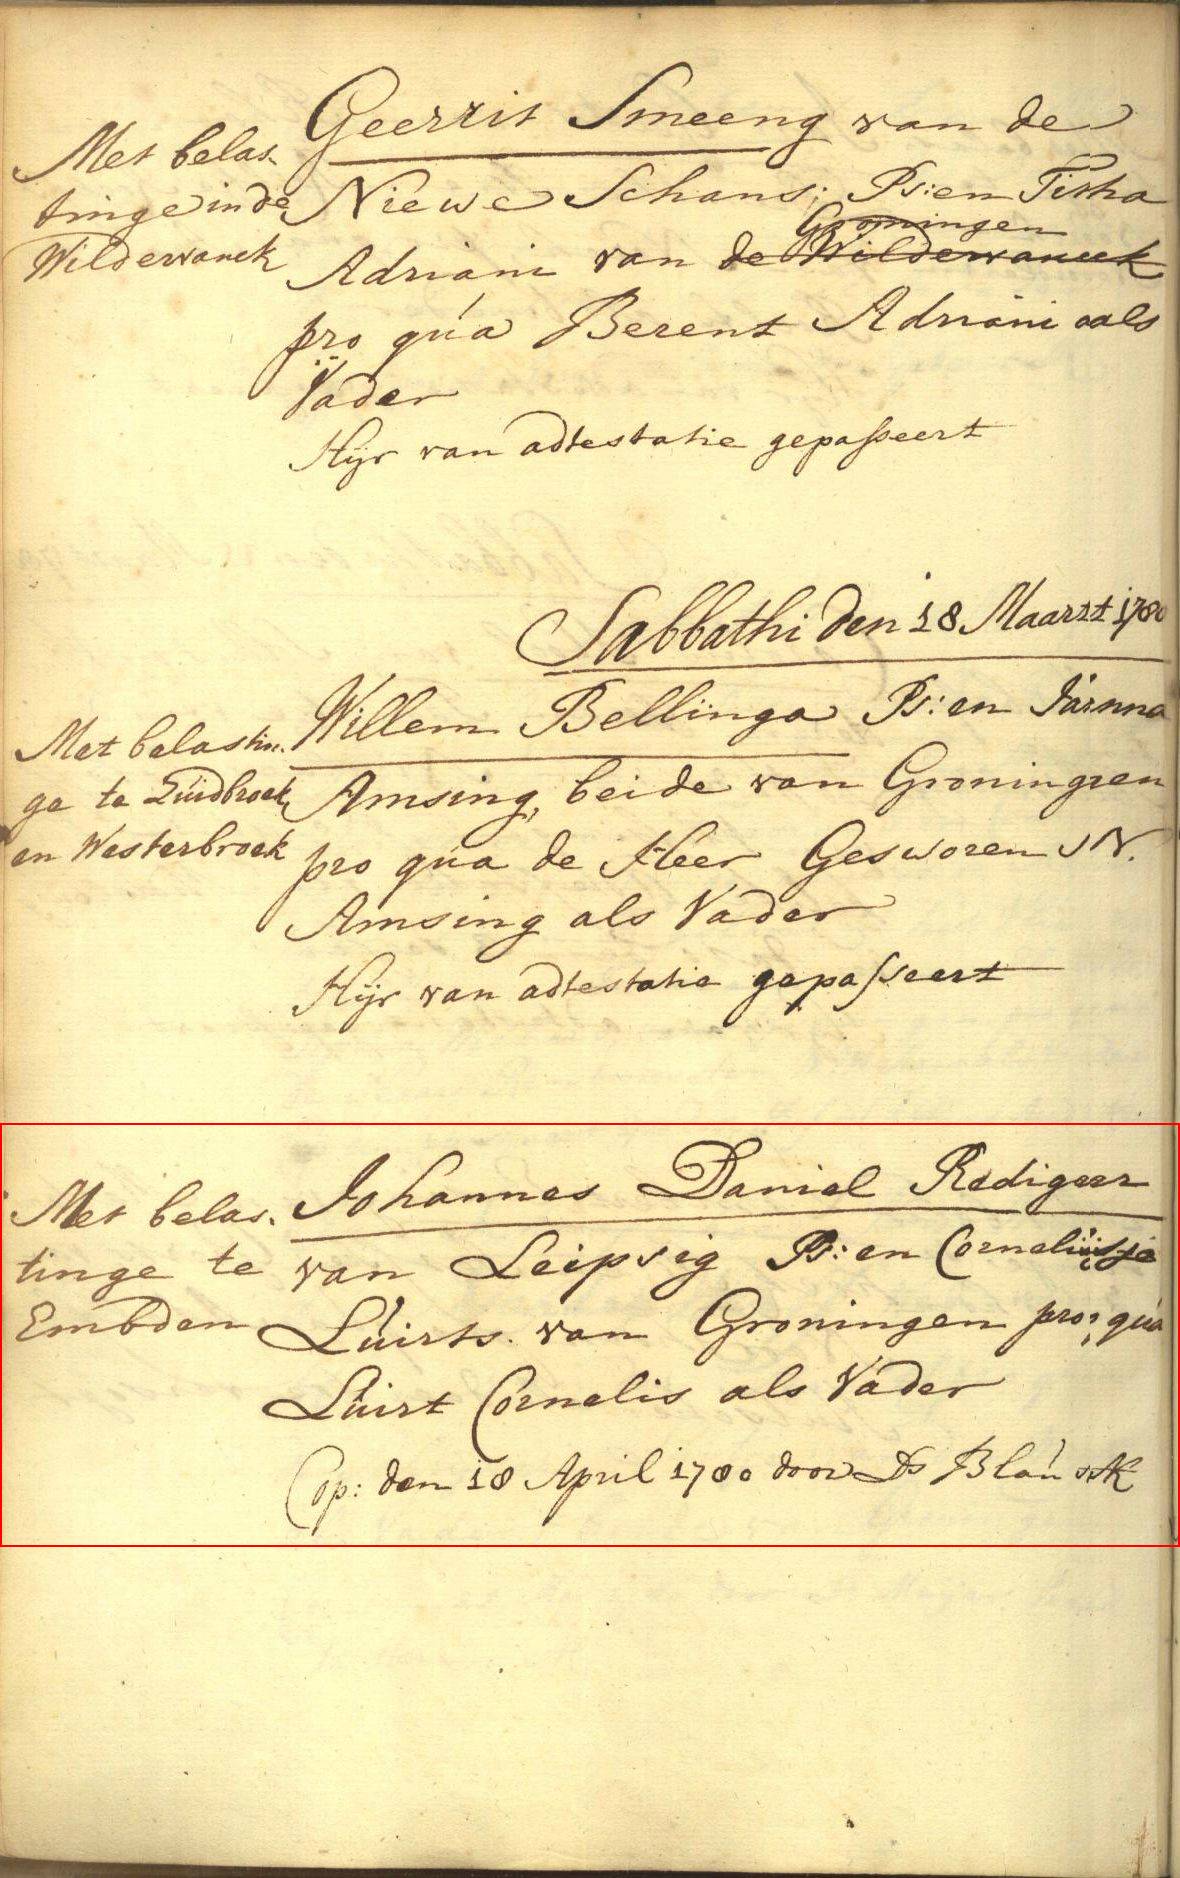 Geerrit Smeeng van de
Met belas-
tinge in de
Wildervanck
Niewe Schans; Ps: en Titha
Groningen
Adriani van de Wildervanck
pro qúa Berent Adriani als
Vader
Hÿr van adtestatie gepasseert
Sabbathi den 18 Maarrt 1780
Willem Bellinga Ps: en
Met belastin-
ge te Zuidbroek
en Westerbroek
Amsing, beide van Groningen
pro qúa de Heer Gesworen N.
Amsing als Vader
Hÿr van adtestatie gepasseert
Johannes Daniel Redigerr
Met belas-
tinge te
Embden
van Leipsig Ps: en Cornelijsje
Lúirts van Groningen pro: qúa
Lúirt Cornelis als Vader
Cop: den 18 April 1780 door Ds Blaú AK